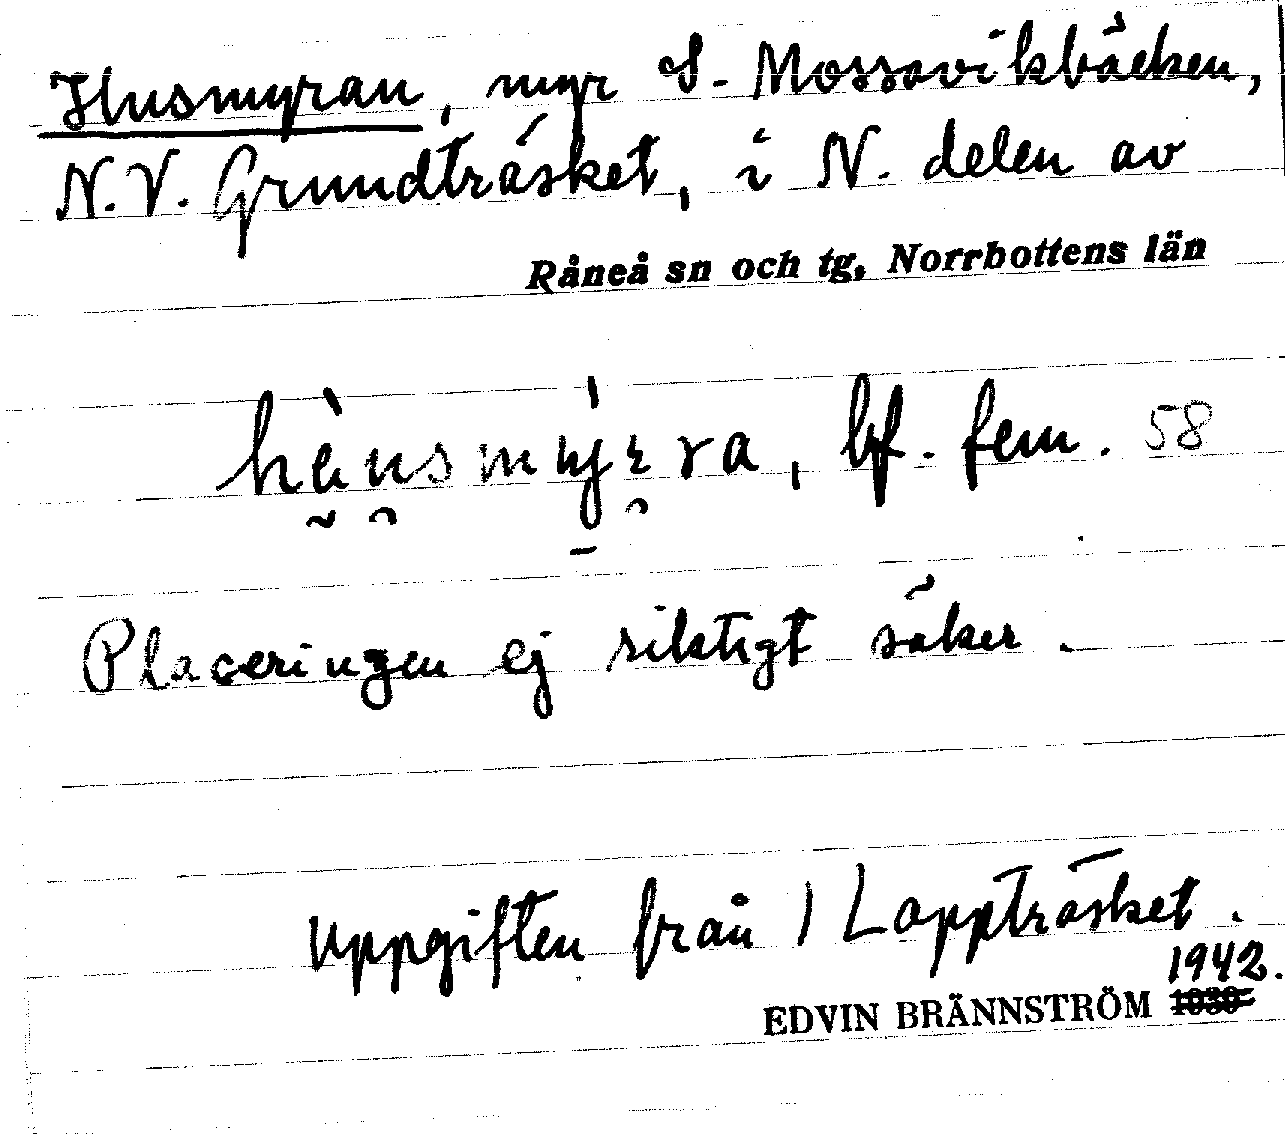 Husmyran, myr S. Mossavikbäcken,
N.V. Grundträsket, i N. delen av
Råneå sn och tg, Norrbottens län
bf. fem. 58
Placeringen ej riktigt säker.
Uppgiften från 1 Lappträsket.
1942.
EDVIN BRÄNNSTRÖM 1930